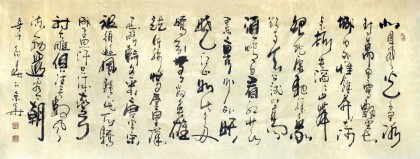 北国风光千里冰
封万里雪飘望长
城内外惟余莽莽大河
上下顿失滔滔山舞
银蛇原驰蜡象欲
与天公试比高须
晴日看红装素裹分外
妖娆江山如此多
娇引无数英雄竞折
腰惜秦皇汉武略
输文采唐宗宋祖
稍逊风骚一代天骄
成吉思汗只识弯弓
射大雕俱往矣数风
流人物还看今朝